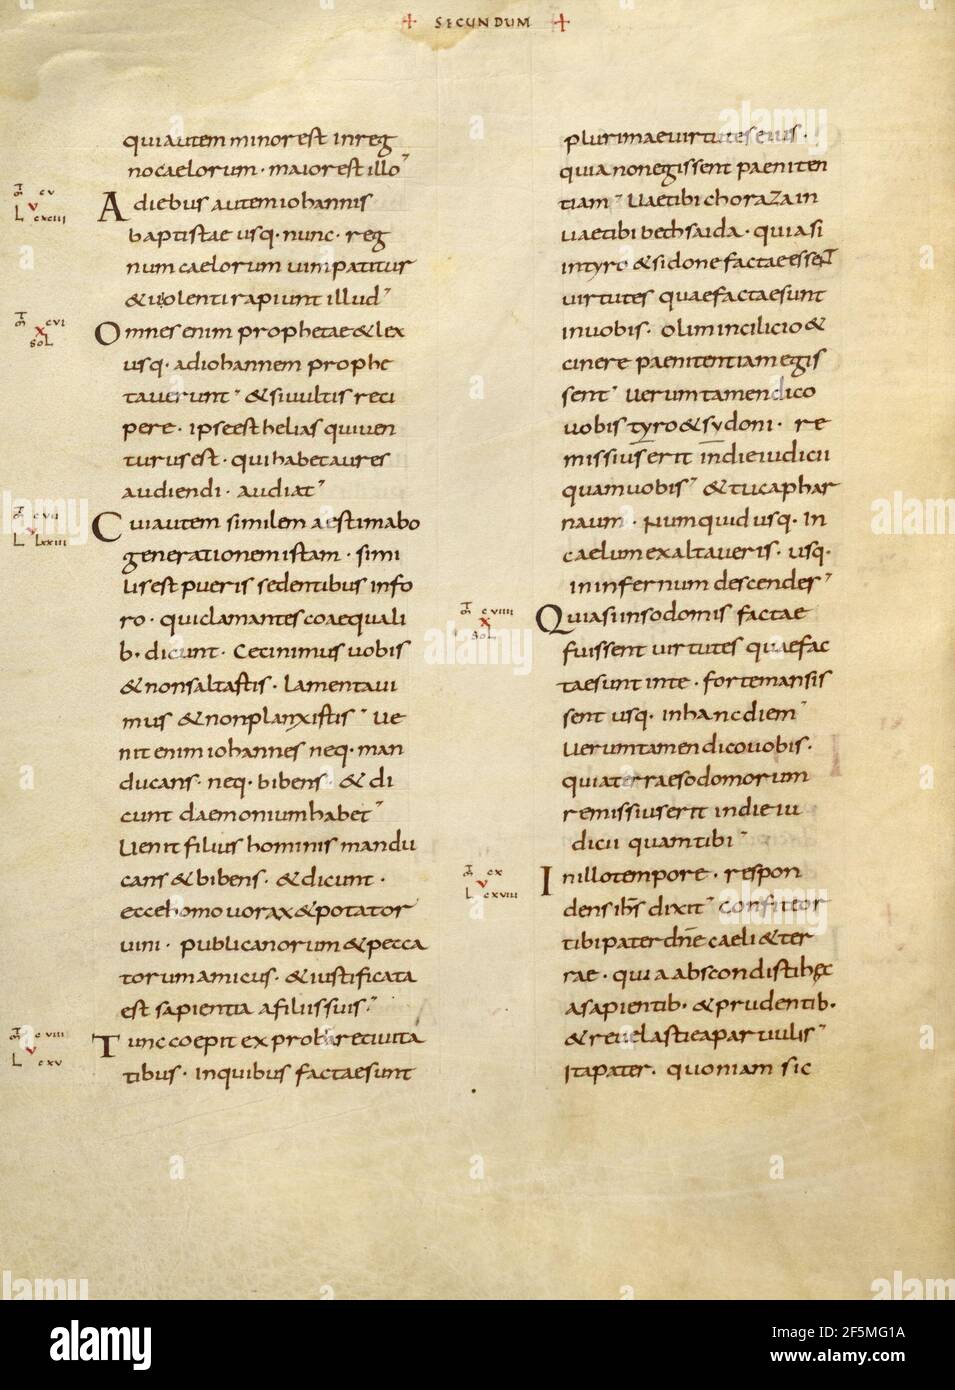 + SECUNDUM +
qui autem minor est in reg
no caelorum · maior est illo
m cv
L v cxciii
A diebus autem iohannis
baptistae usq· nunc · reg
num caelorum uim patitur
& uiolenti rapiunt illud
m cvi
x
soL
Omnes enim prophetae & lex
usq· ad iohannem prophe
tauerunt & si uultis reci
pere · ipse est helias qui uen
turus est · qui habet aures
audiendi · audiat
m cvii
L v lxxiii
Cui autem similem aestimabo
generationem istam · simi
lis est pueris sedentibus in fo
ro · qui clamantes coaequali
b· dicunt · Cecinimus uobis
& non saltastis · lamentaui
mus & non planxistis ue
nit enim iohannes neq· man
ducans · neq· bibens · & di
cunt daemonium habet
Uenit filius hominis mandu
cans & bibens · & dicunt ·
ecce homo uorax & potator
uini · publicanorum & pecca
torum amicus · & iustificata
est sapientia a filiis suis ·
m cviii
L v cxv
Tunc coepit exprobrare ciuita
tibus · in quibus factae sunt
plurimae uirtutes eius ·
quia non egissent paeniten
tiam Uae tibi chorazain
uae tibi bethsaida · quia si
in tyro & sidone factae esseT
uirtutes quae factae sunt
in uobis · olim in cilicio &
cinere paenitentiam egis
sent Uerumtamen dico
uobis tyro & sydoni · re
missius erit in die iudicii
quam uobis & tu caphar
naum · Numquid usq· In
caelum exaltaueris · usq·
in infernum descender
m cviiii
x
soL
Quia si in sodomis factae
fuissent uirtutes quae fac
tae sunt in te · forte mansis
sent usq· in hanc diem
Uerumtamen dico uobis ·
quia terrae sodomorum
remissius erit in die iu
dicii quam tibi
m cx
L v cxviii
In illo tempore · respon
dens ihs dixit confiteor
tibi pater dne caeli & ter
rae · quia abscondisti hęc
a sapientib· & prudentib·
& reuelasti ea paruulis
Ita pater · quoniam sic
alamy
Image ID: 2F5MG1A
www.alamy.com